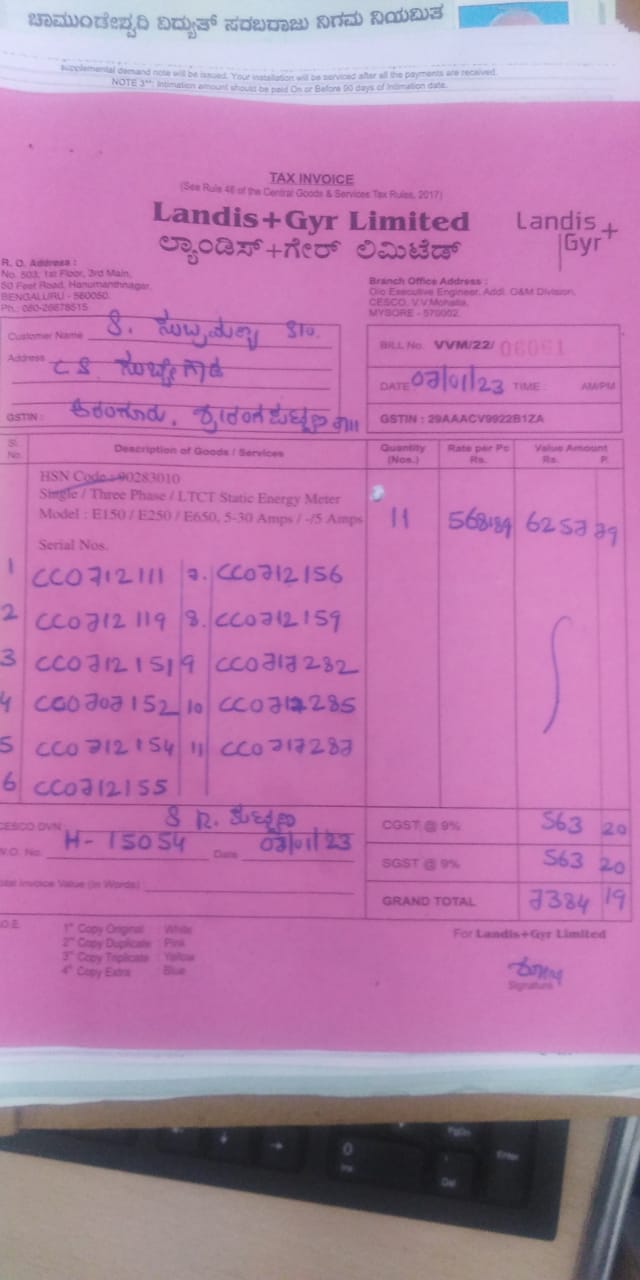 ಚಾಮುಂಡೇಶ್ವರಿ ವಿದ್ಯುತ್ ಸರಬರಾಜು ನಿಗಮ ನಿಯಮಿತ
supplemental demand note will be issued. Your installation will be serviced after all the payments are received.
NOTE 3**: Intimation amount should be paid On or Before 90 days of Intimation date.
TAX INVOICE
(See Rule 46 of the Central Goods & Services Tax Rules, 2017)
Landis+Gyr Limited
Landis+Gyr
ಲ್ಯಾಂಡಿಸ್+ಗೇರ್ ಲಿಮಿಟೆಡ್
R. O. Address :
No. 503, 1st Floor, 3rd Main,
50 Feet Road, Hanumanthnagar,
BENGALURU - 560050.
Ph.: 080-26678515
Branch Office Address :
O/o Executive Engineer, Addl. O&M Division,
CESCO, V.V.Mohalla,
MYSORE - 570002.
Customer Name S. ಸುಬ್ರಮಣ್ಯ S/o.
Address C S ಸುಬ್ಬೇಗೌಡ
GSTIN :
BILL No. VVM/22/ 06061
DATE 07/01/23 TIME : AM/PM
GSTIN : 29AAACV9922B1ZA
Sl. No. Description of Goods / Services Quantity (Nos.) Rate per Pc Rs. Value Amount Rs. P.
HSN Code : 90283010
Single / Three Phase / LTCT Static Energy Meter
Model : E150 / E250 / E650, 5-30 Amps / -/5 Amps 11 568.89 6257 79
Serial Nos.
1 CC0712111 7. CC0712156
2 CC0712119 8. CC0712159
3 CC0712151 9 CC0717282
4 CC0707152 10 CC0717285
5 CC0712154 11 CC0717287
6 CC0712155
CESCO DVN S R. ಪಟ್ಟಣ
W.O. No. H-15054 Date 07/01/23
Total Invoice Value (In Words) :
CGST @ 9% 563 20
SGST @ 9% 563 20
GRAND TOTAL 7384 19
O.E.
1st Copy Original : White
2nd Copy Duplicate : Pink
3rd Copy Triplicate : Yellow
4th Copy Extra : Blue
For Landis+Gyr Limited
Signature